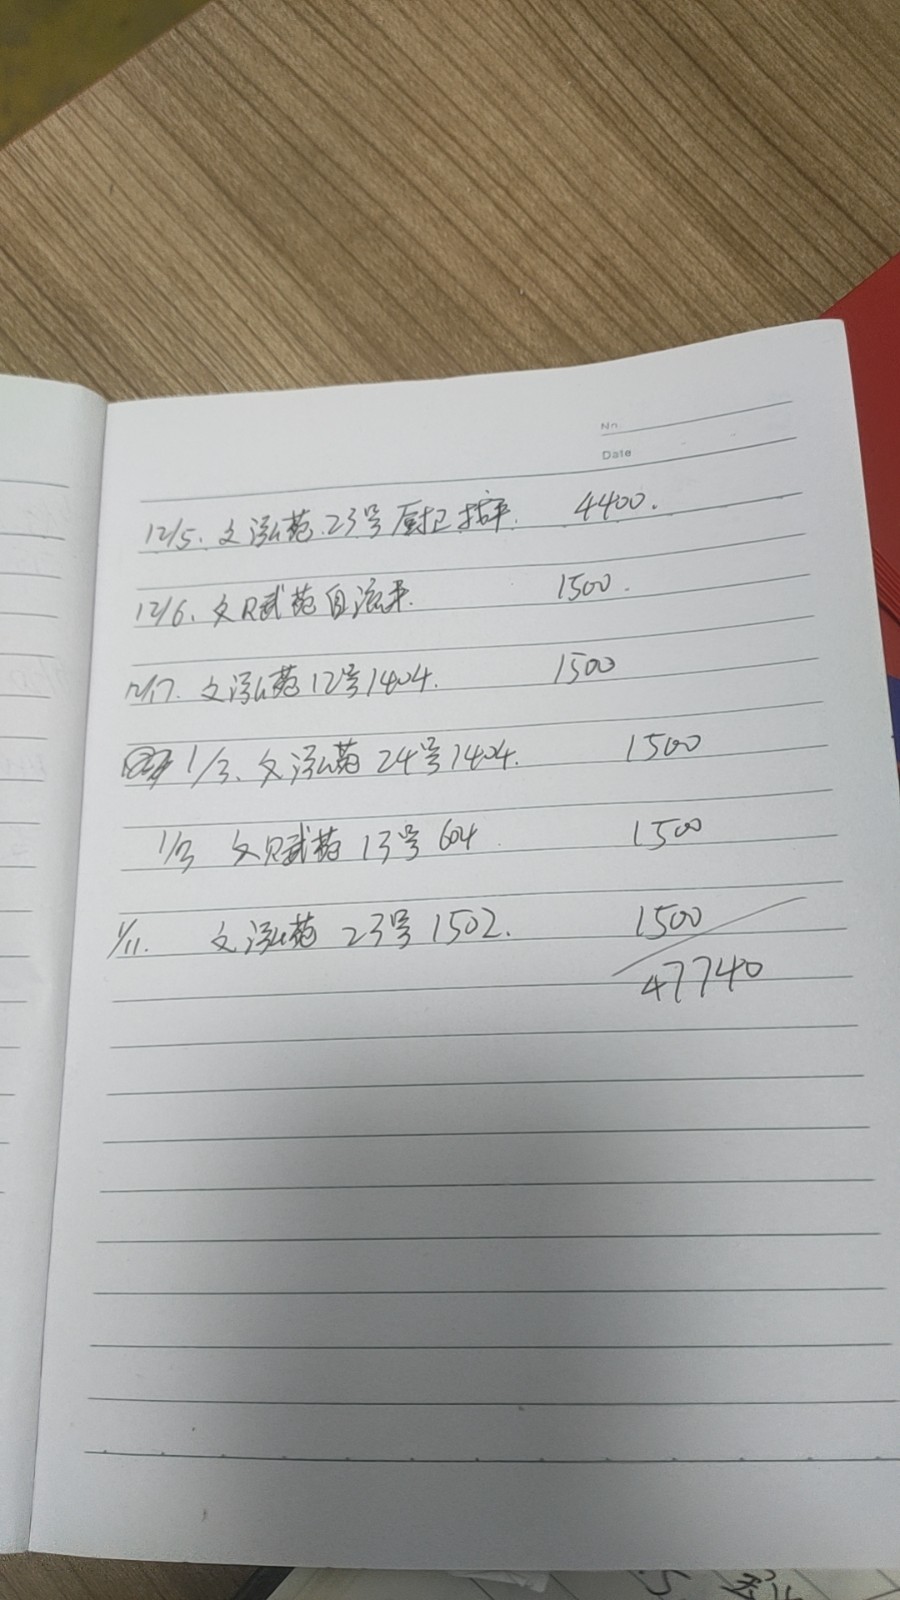 No
Date
12/5. 文泓苑.23号厨卫找平. 4400.
12/6. 文赋苑自流平. 1500.
12/17. 文泓苑12号1404. 1500
1/3. 文泓苑 24号1404. 1500
1/3 文赋苑 13号 604 1500
1/11. 文泓苑 23号 1502. 1500
47740